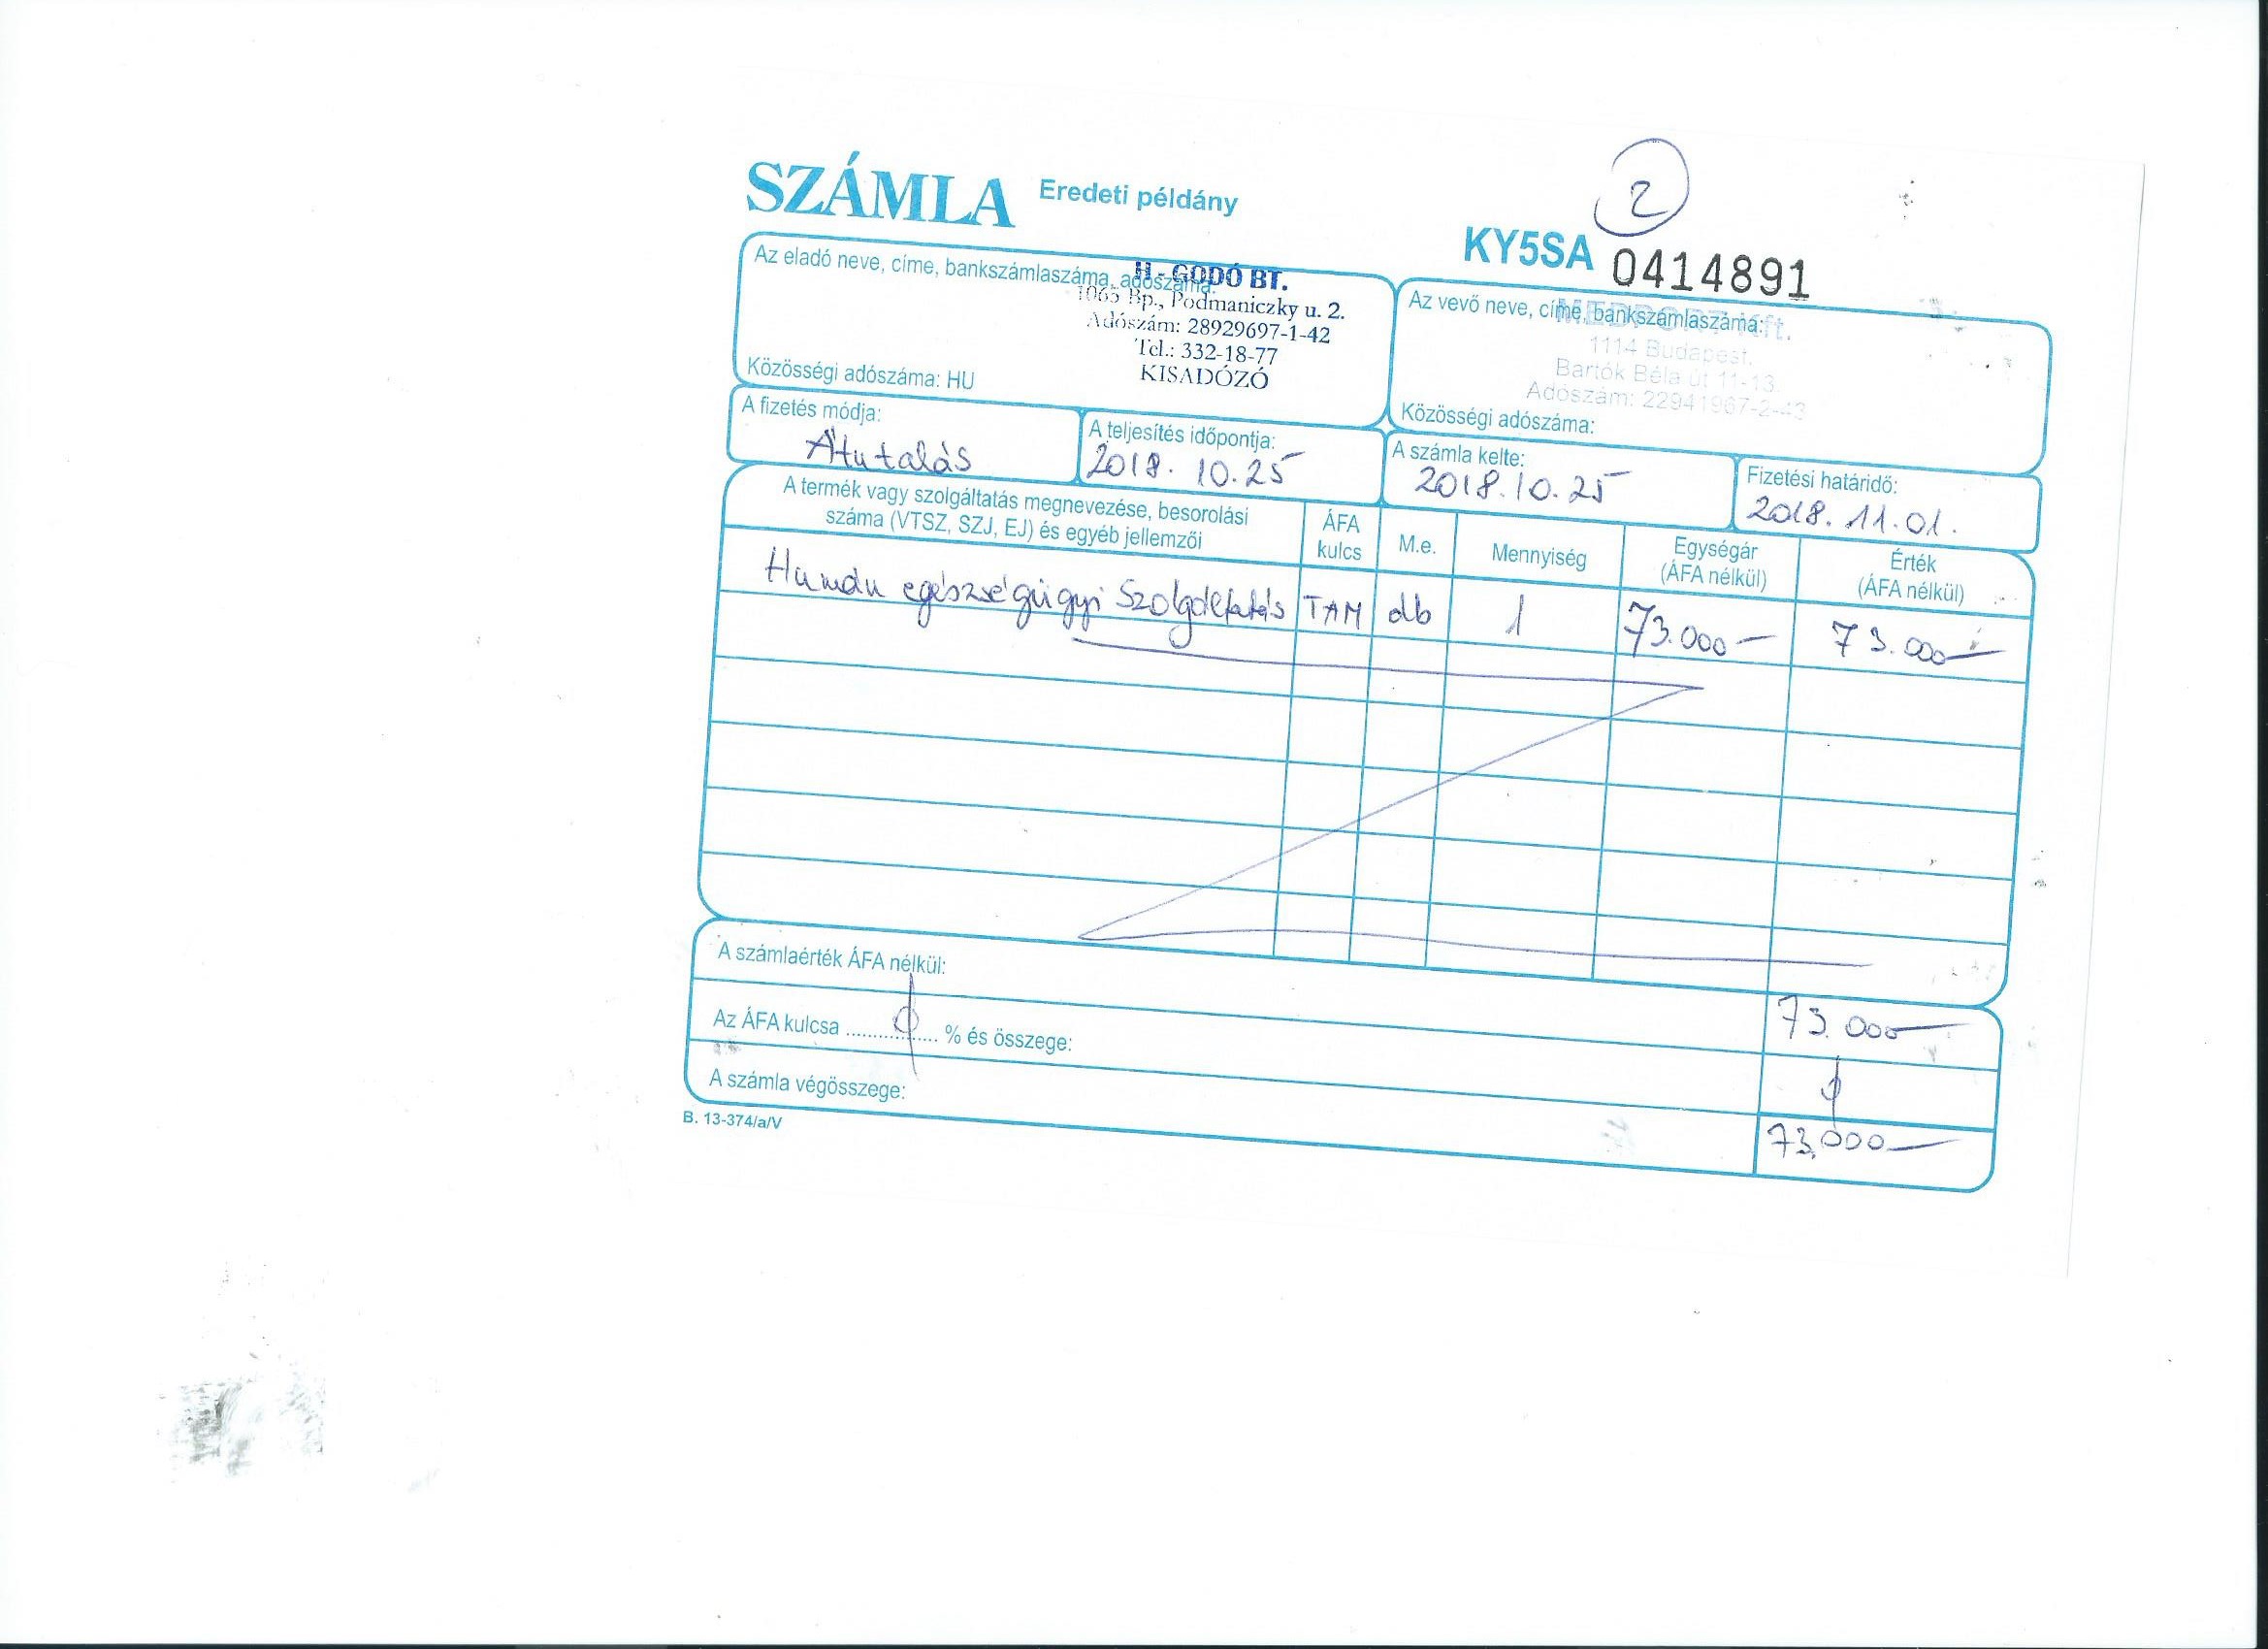 SZÁMLA Eredeti példány
2
KY5SA 0414891
Az eladó neve, címe, bankszámlaszáma, adószáma:
H - GODÓ BT.
1065 Bp., Podmaniczky u. 2.
Adószám: 28929697-1-42
Tel.: 332-18-77
KISADÓZÓ
Közösségi adószáma: HU
Az vevő neve, címe, bankszámlaszáma:
MEDPORT Kft.
1114 Budapest.
Bartók Béla út 11-13.
Adószám: 22941967-2-43
Közösségi adószáma:
A fizetés módja:
Átutalás
A teljesítés időpontja:
2018. 10. 25
A számla kelte:
2018. 10. 25
Fizetési határidő:
2018. 11. 01.
A termék vagy szolgáltatás megnevezése, besorolási
száma (VTSZ, SZJ, EJ) és egyéb jellemzői
ÁFA
kulcs
M.e.
Mennyiség
Egységár
(ÁFA nélkül)
Érték
(ÁFA nélkül)
Humán egészségügyi Szolgáltatás TAM db 1 73.000 — 73.000 —
A számlaérték ÁFA nélkül: 73.000 —
Az ÁFA kulcsa .......... % és összege:
A számla végösszege: 73.000 —
B. 13-374/a/V